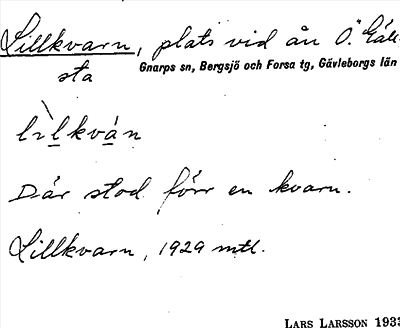 Lillkvarn, plats vid ån Ö. Gäll-
sta
Gnarps sn, Bergsjö och Forsa tg, Gävleborgs län
Där stod förr en kvarn.
Lillkvarn, 1929 mtl.
LARS LARSSON 1933